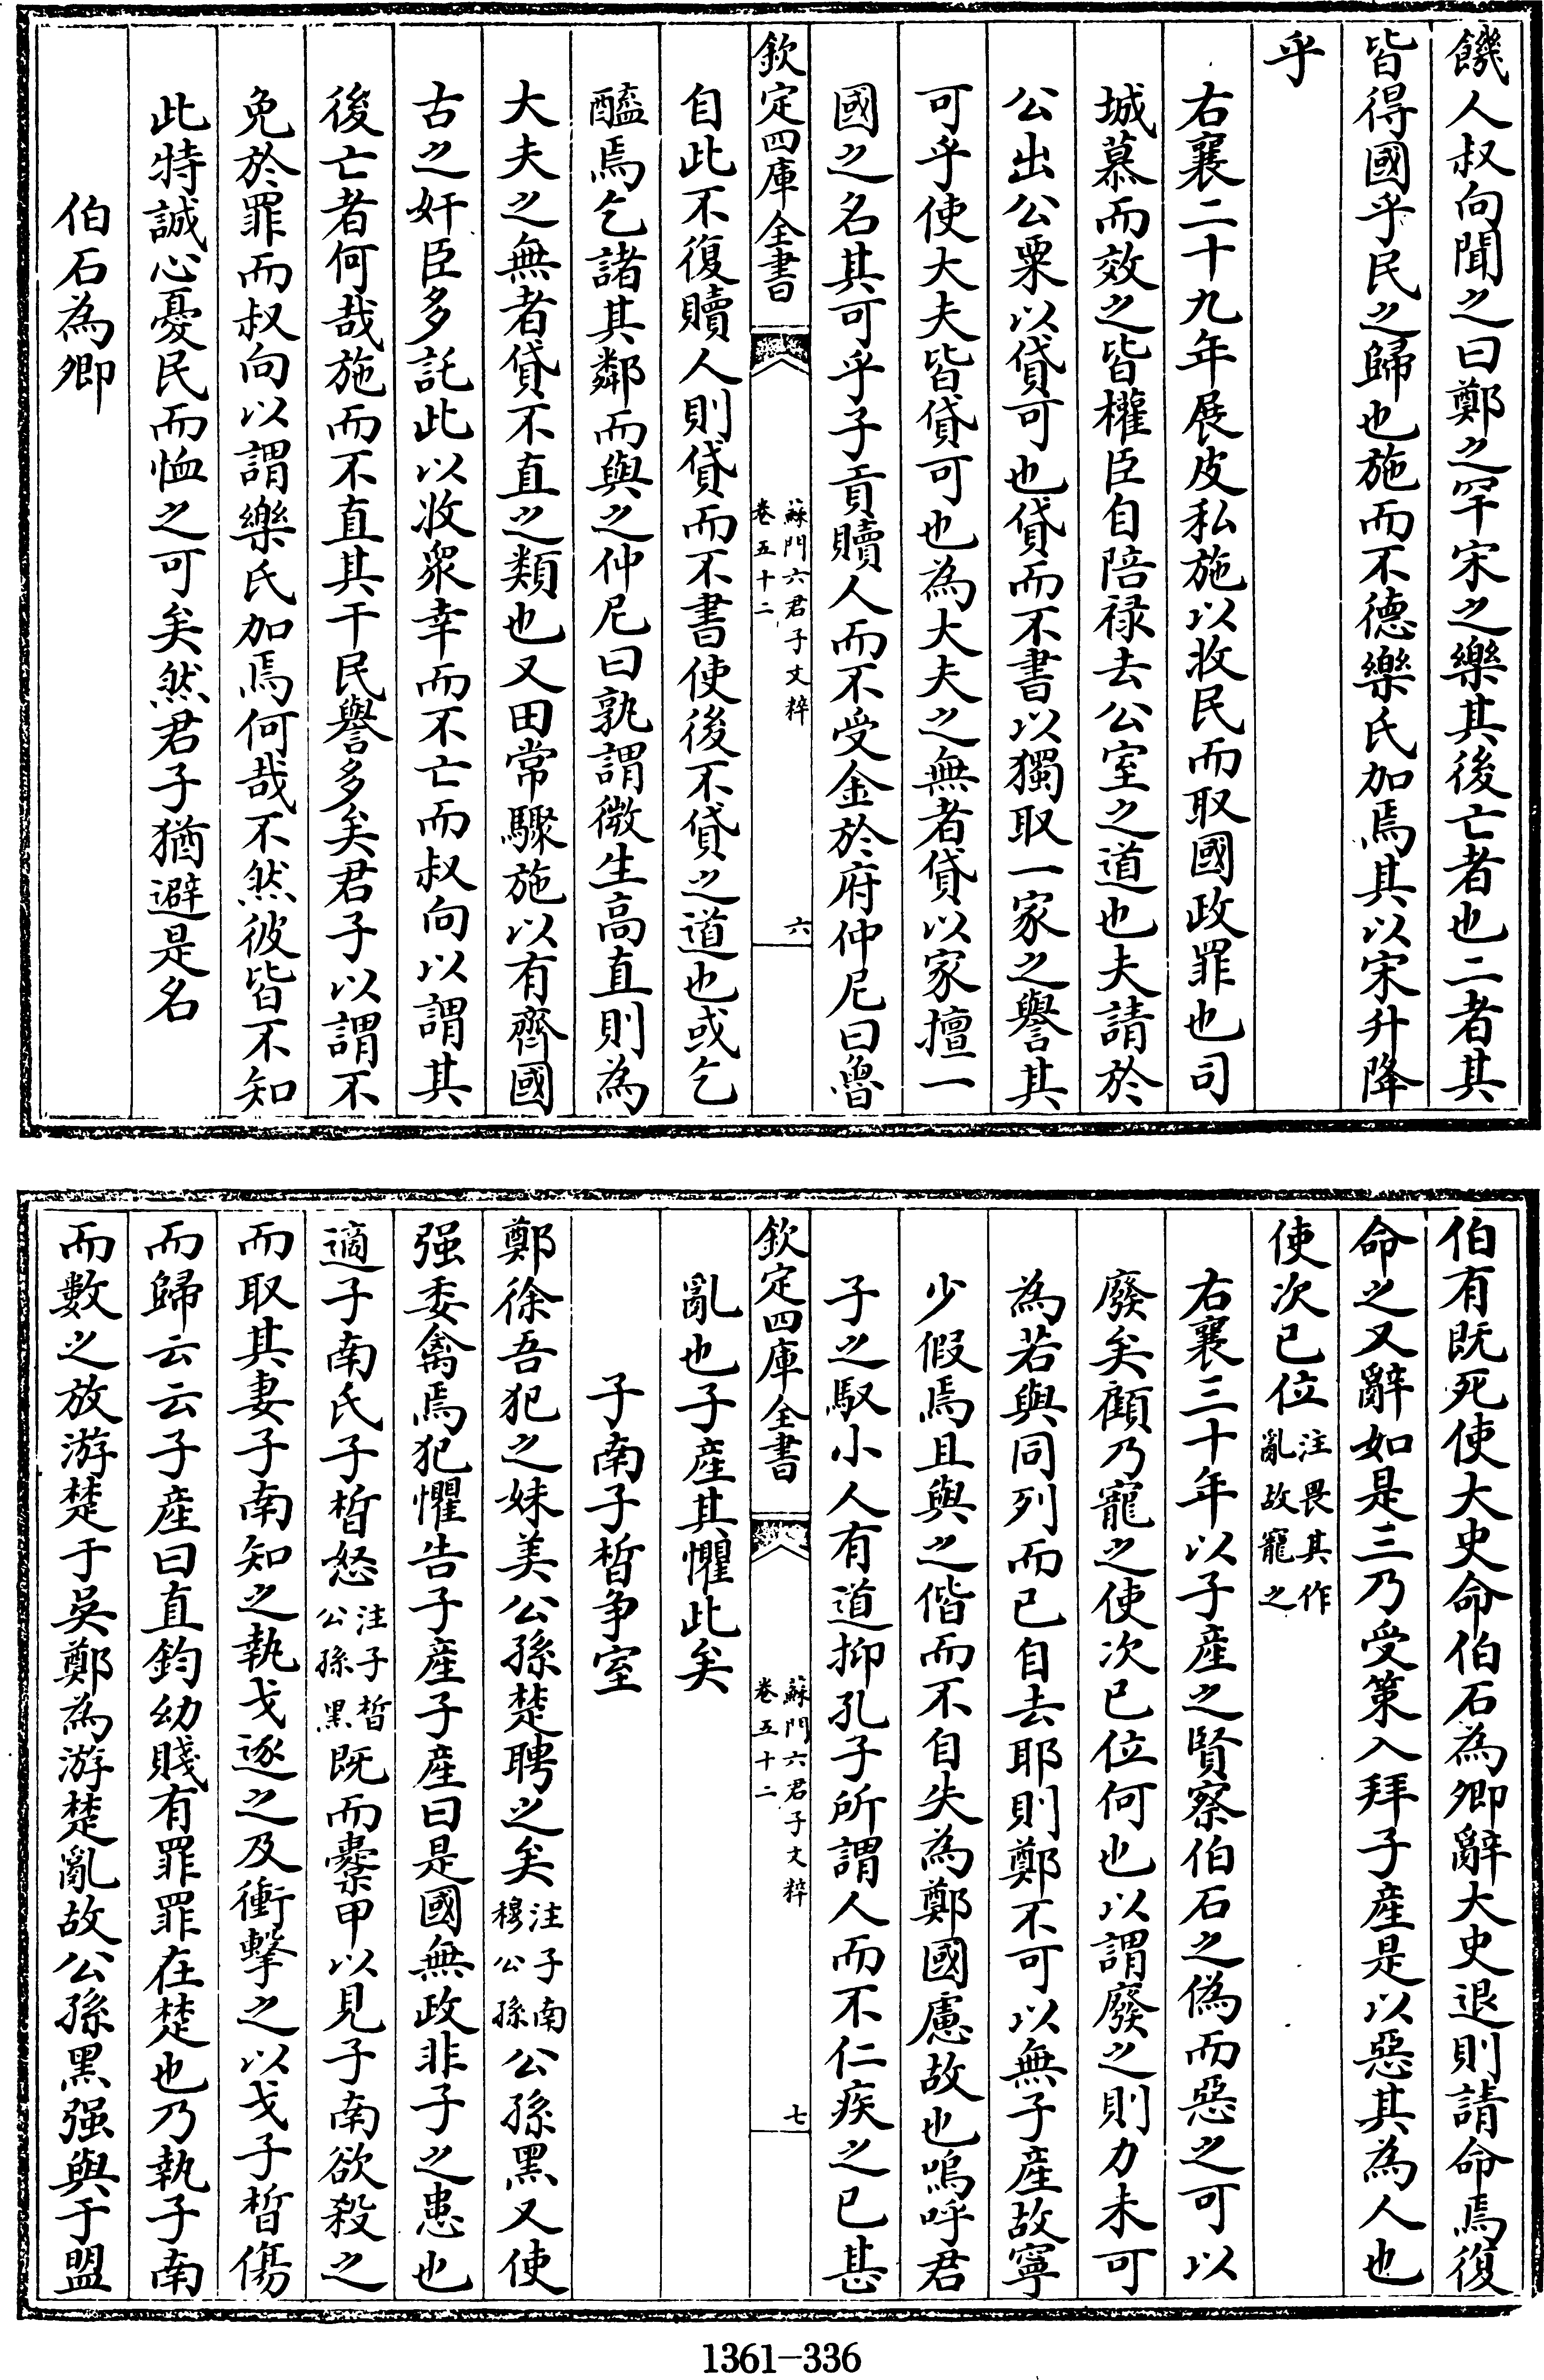 饑人叔向聞之曰鄭之罕宋之樂其後亡者也二者其
皆得國乎民之歸也施而不德樂氏加焉其以宋升降
乎
右襄二十九年展皮私施以收民而取國政罪也司
城慕而效之皆權臣自陪祿去公室之道也夫請於
公出公粟以貸可也貸而不書以獨取一家之譽其
可乎使大夫皆貸可也為大夫之無者貸以家擅一
國之名其可乎子貢贖人而不受金於府仲尼曰魯
欽定四庫全書
蘇門六君子文粹
卷五十二
六
自此不復贖人則貸而不書使後不貸之道也或乞
醯焉乞諸其鄰而與之仲尼曰孰謂微生高直則為
大夫之無者貸不直之類也又田常驟施以有齊國
古之奸臣多託此以收衆幸而不亡而叔向以謂其
後亡者何哉施而不直其干民譽多矣君子以謂不
免於罪而叔向以謂樂氏加焉何哉不然彼皆不知
此特誠心憂民而恤之可矣然君子猶避是名
伯石為卿
伯有既死使大史命伯石為卿辭大史退則請命焉復
命之又辭如是三乃受策入拜子產是以惡其為人也
使次已位注畏其作
亂故寵之
右襄三十年以子產之賢察伯石之偽而惡之可以
廢矣顧乃寵之使次已位何也以謂廢之則力未可
為若與同列而已自去耶則鄭不可以無子產故寧
少假焉且與之偕而不自失為鄭國慮故也嗚呼君
子之馭小人有道抑孔子所謂人而不仁疾之已甚
欽定四庫全書
蘇門六君子文粹
卷五十二
七
亂也子產其懼此矣
子南子晳争室
鄭徐吾犯之妹美公孫楚聘之矣注子南
穆公孫公孫黑又使
强委禽焉犯懼告子產子產曰是國無政非子之患也
適子南氏子晳怒注子晳
公孫黑既而櫜甲以見子南欲殺之
而取其妻子南知之執戈逐之及衝擊之以戈子晳傷
而歸云云子產曰直鈞幼賤有罪罪在楚也乃執子南
而數之放游楚于吳鄭為游楚亂故公孫黑强與于盟
1361-336